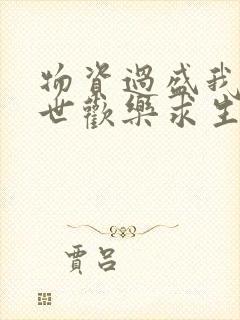 物資過盛我
世歡樂求生
賈呂